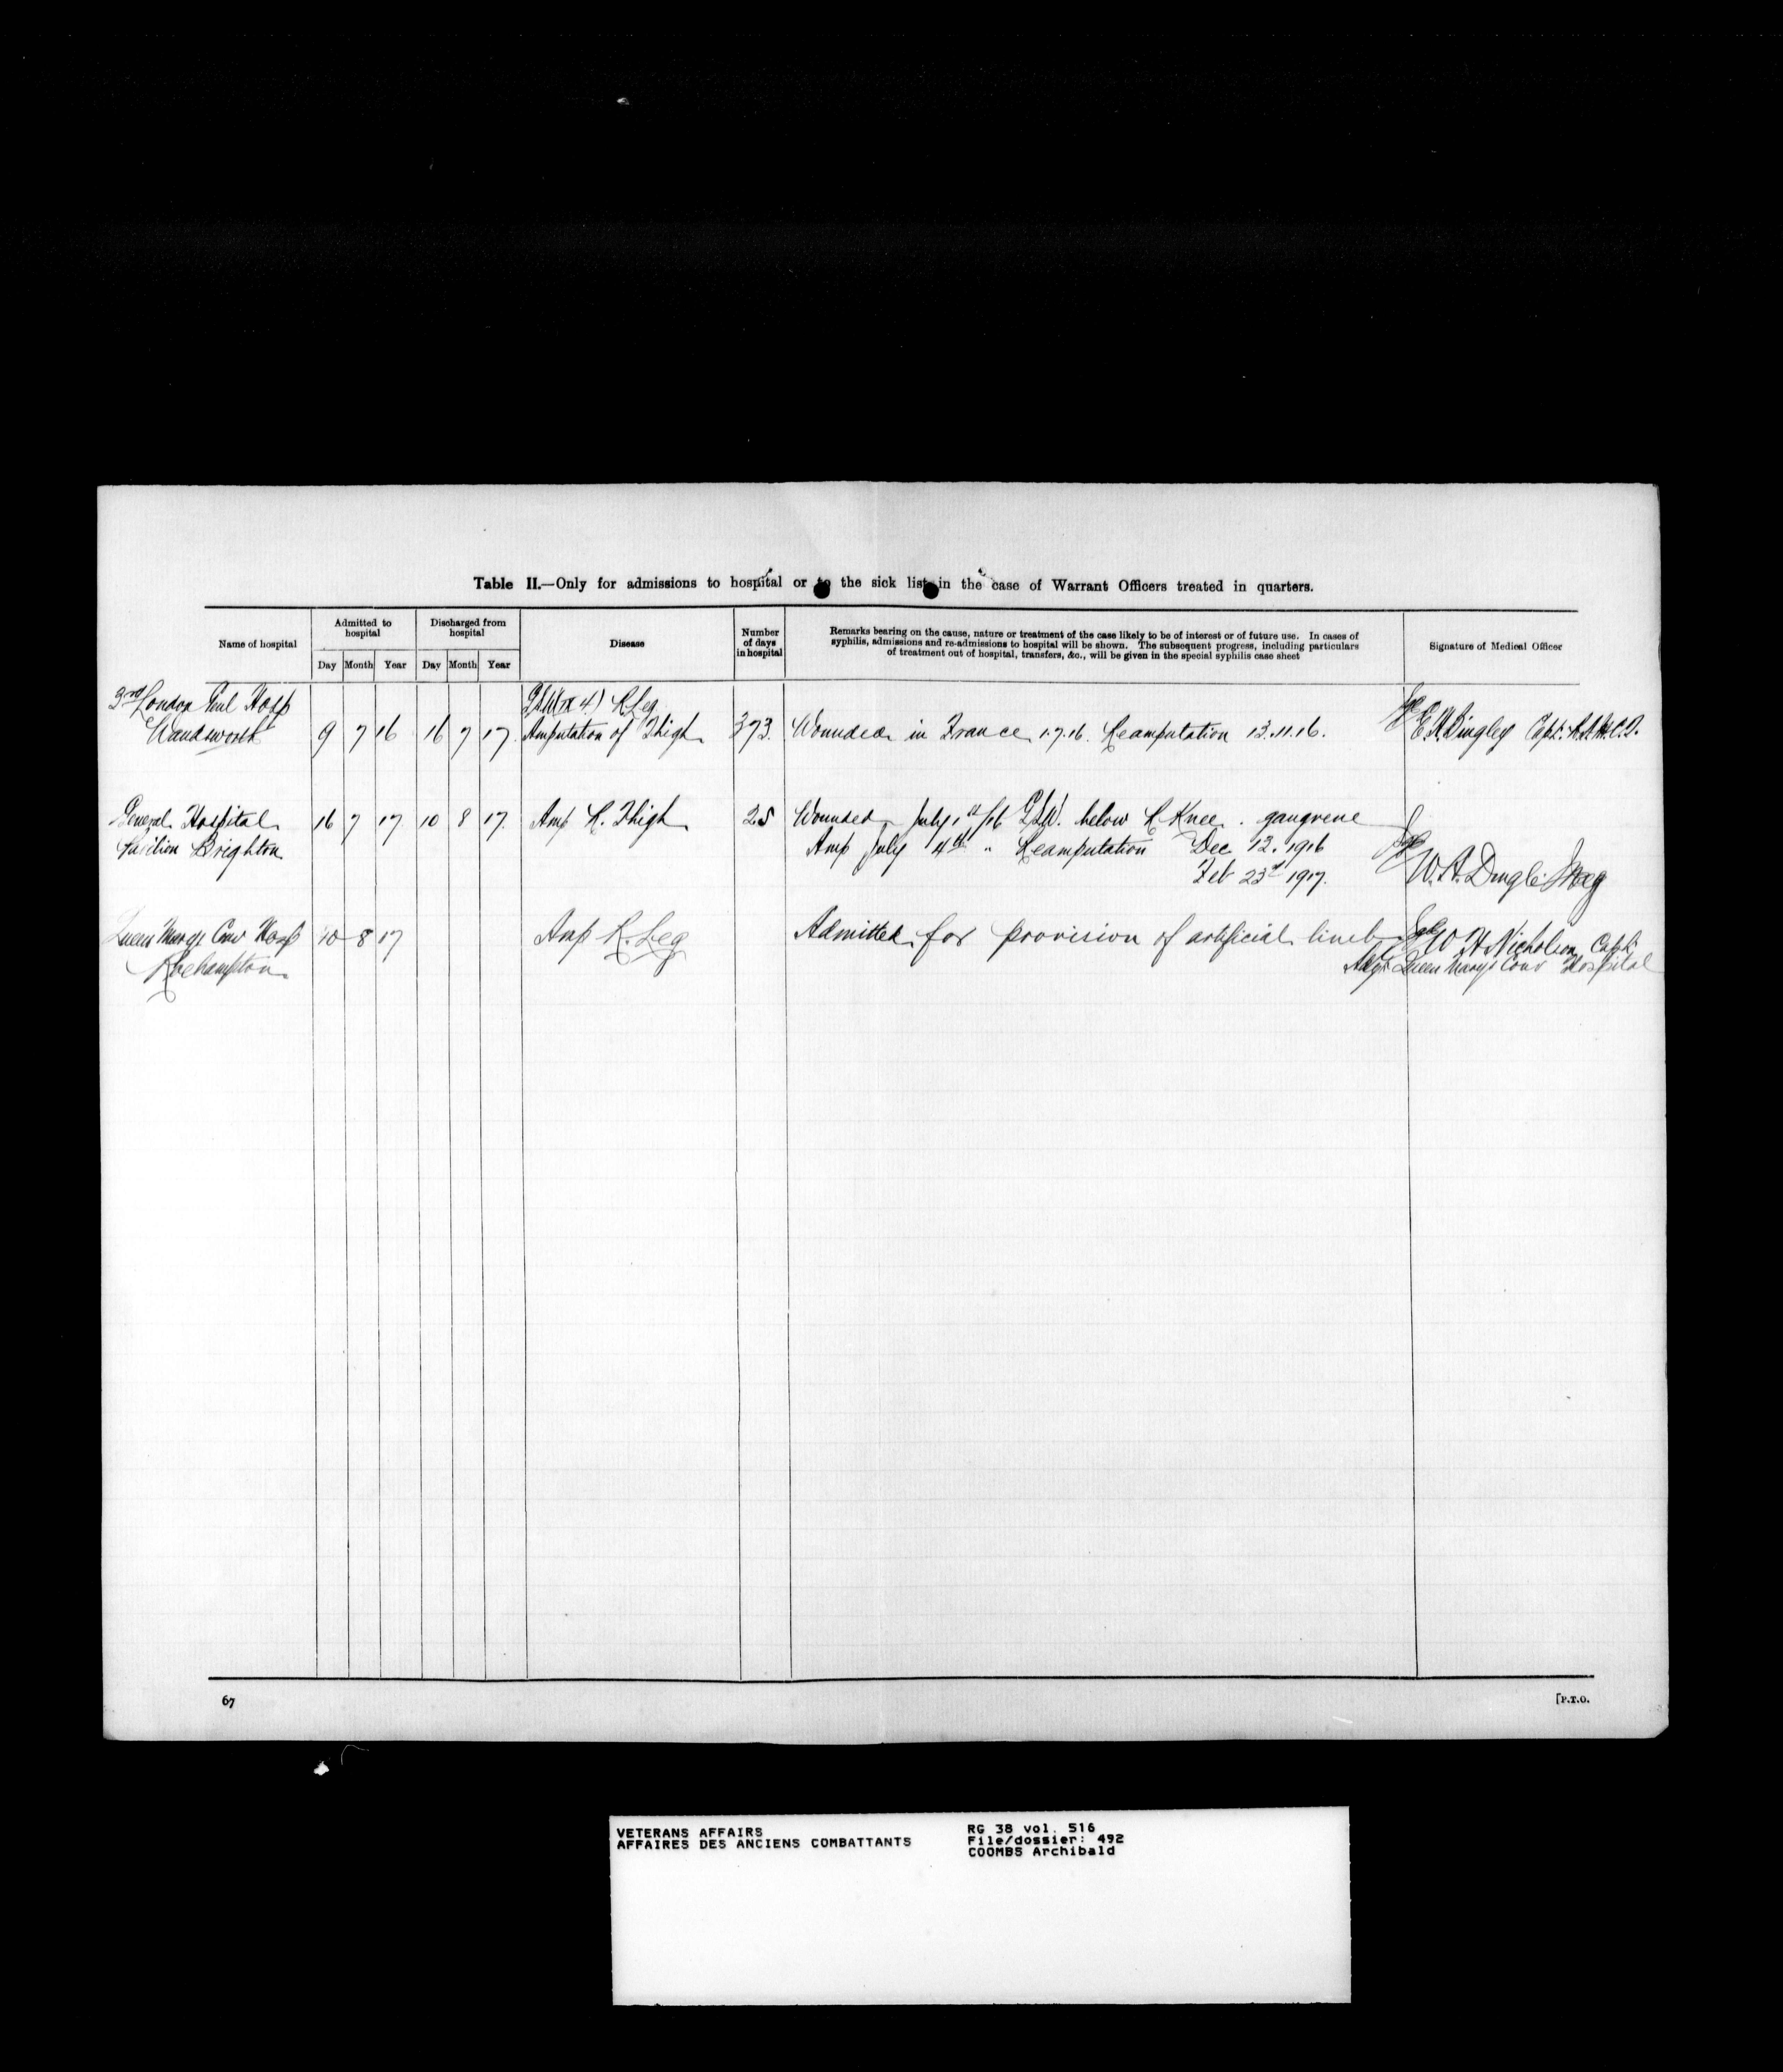 Table II.—Only for admissions to hospital or to the sick list in the case of Warrant Officers treated in quarters.
Name of hospital
Admitted to
hospital
Day Month Year
Discharged from
hospital
Day Month Year
Disease
Number
of days
in hospital
Remarks bearing on the cause, nature or treatment of the case likely to be of interest or of future use. In cases of
syphilis, admissions and re-admissions to hospital will be shown. The subsequent progress, including particulars
of treatment out of hospital, transfers, &c., will be given in the special syphilis case sheet
Signature of Medical Officer
3rd London Genl Hosp
Wandsworth 9 7 16 16 7 17
G.S.W. (IX 4) R Leg
Amputation of Thigh 373 Wounded in France 1.7.16. Reamputation 13.11.16. Capt. R.A.M.C.T.
General Hospital 16 7 17 10 8 17 Amp R. Thigh 25 Wounded July 1st/16 G.S.W. below R Knee. gangrene
Pavilion Brighton Amp July 4th " Reamputation Dec 12. 1916
Feb 23rd 1917.
W. A. Dingle
Queen Marys Conv Hosp 10 8 17 Amp R. Leg Admitted for provision of artificial limb W H Nicholson Capt.
Roehampton Queen Marys Conv Hospital
67
[P.T.O.
VETERANS AFFAIRS
AFFAIRES DES ANCIENS COMBATTANTS
RG 38 vol. 516
File/dossier: 492
COOMBS Archibald